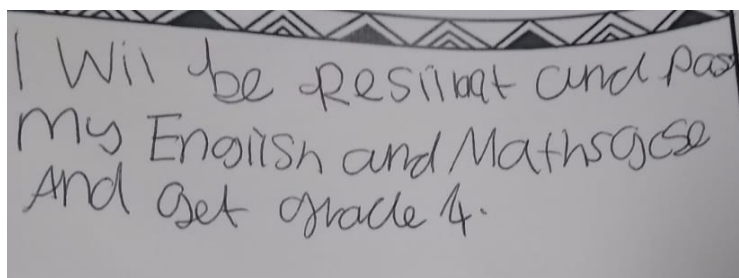 I Wil be Resiliant and pas
my English and Maths gcse
And get grade 4.